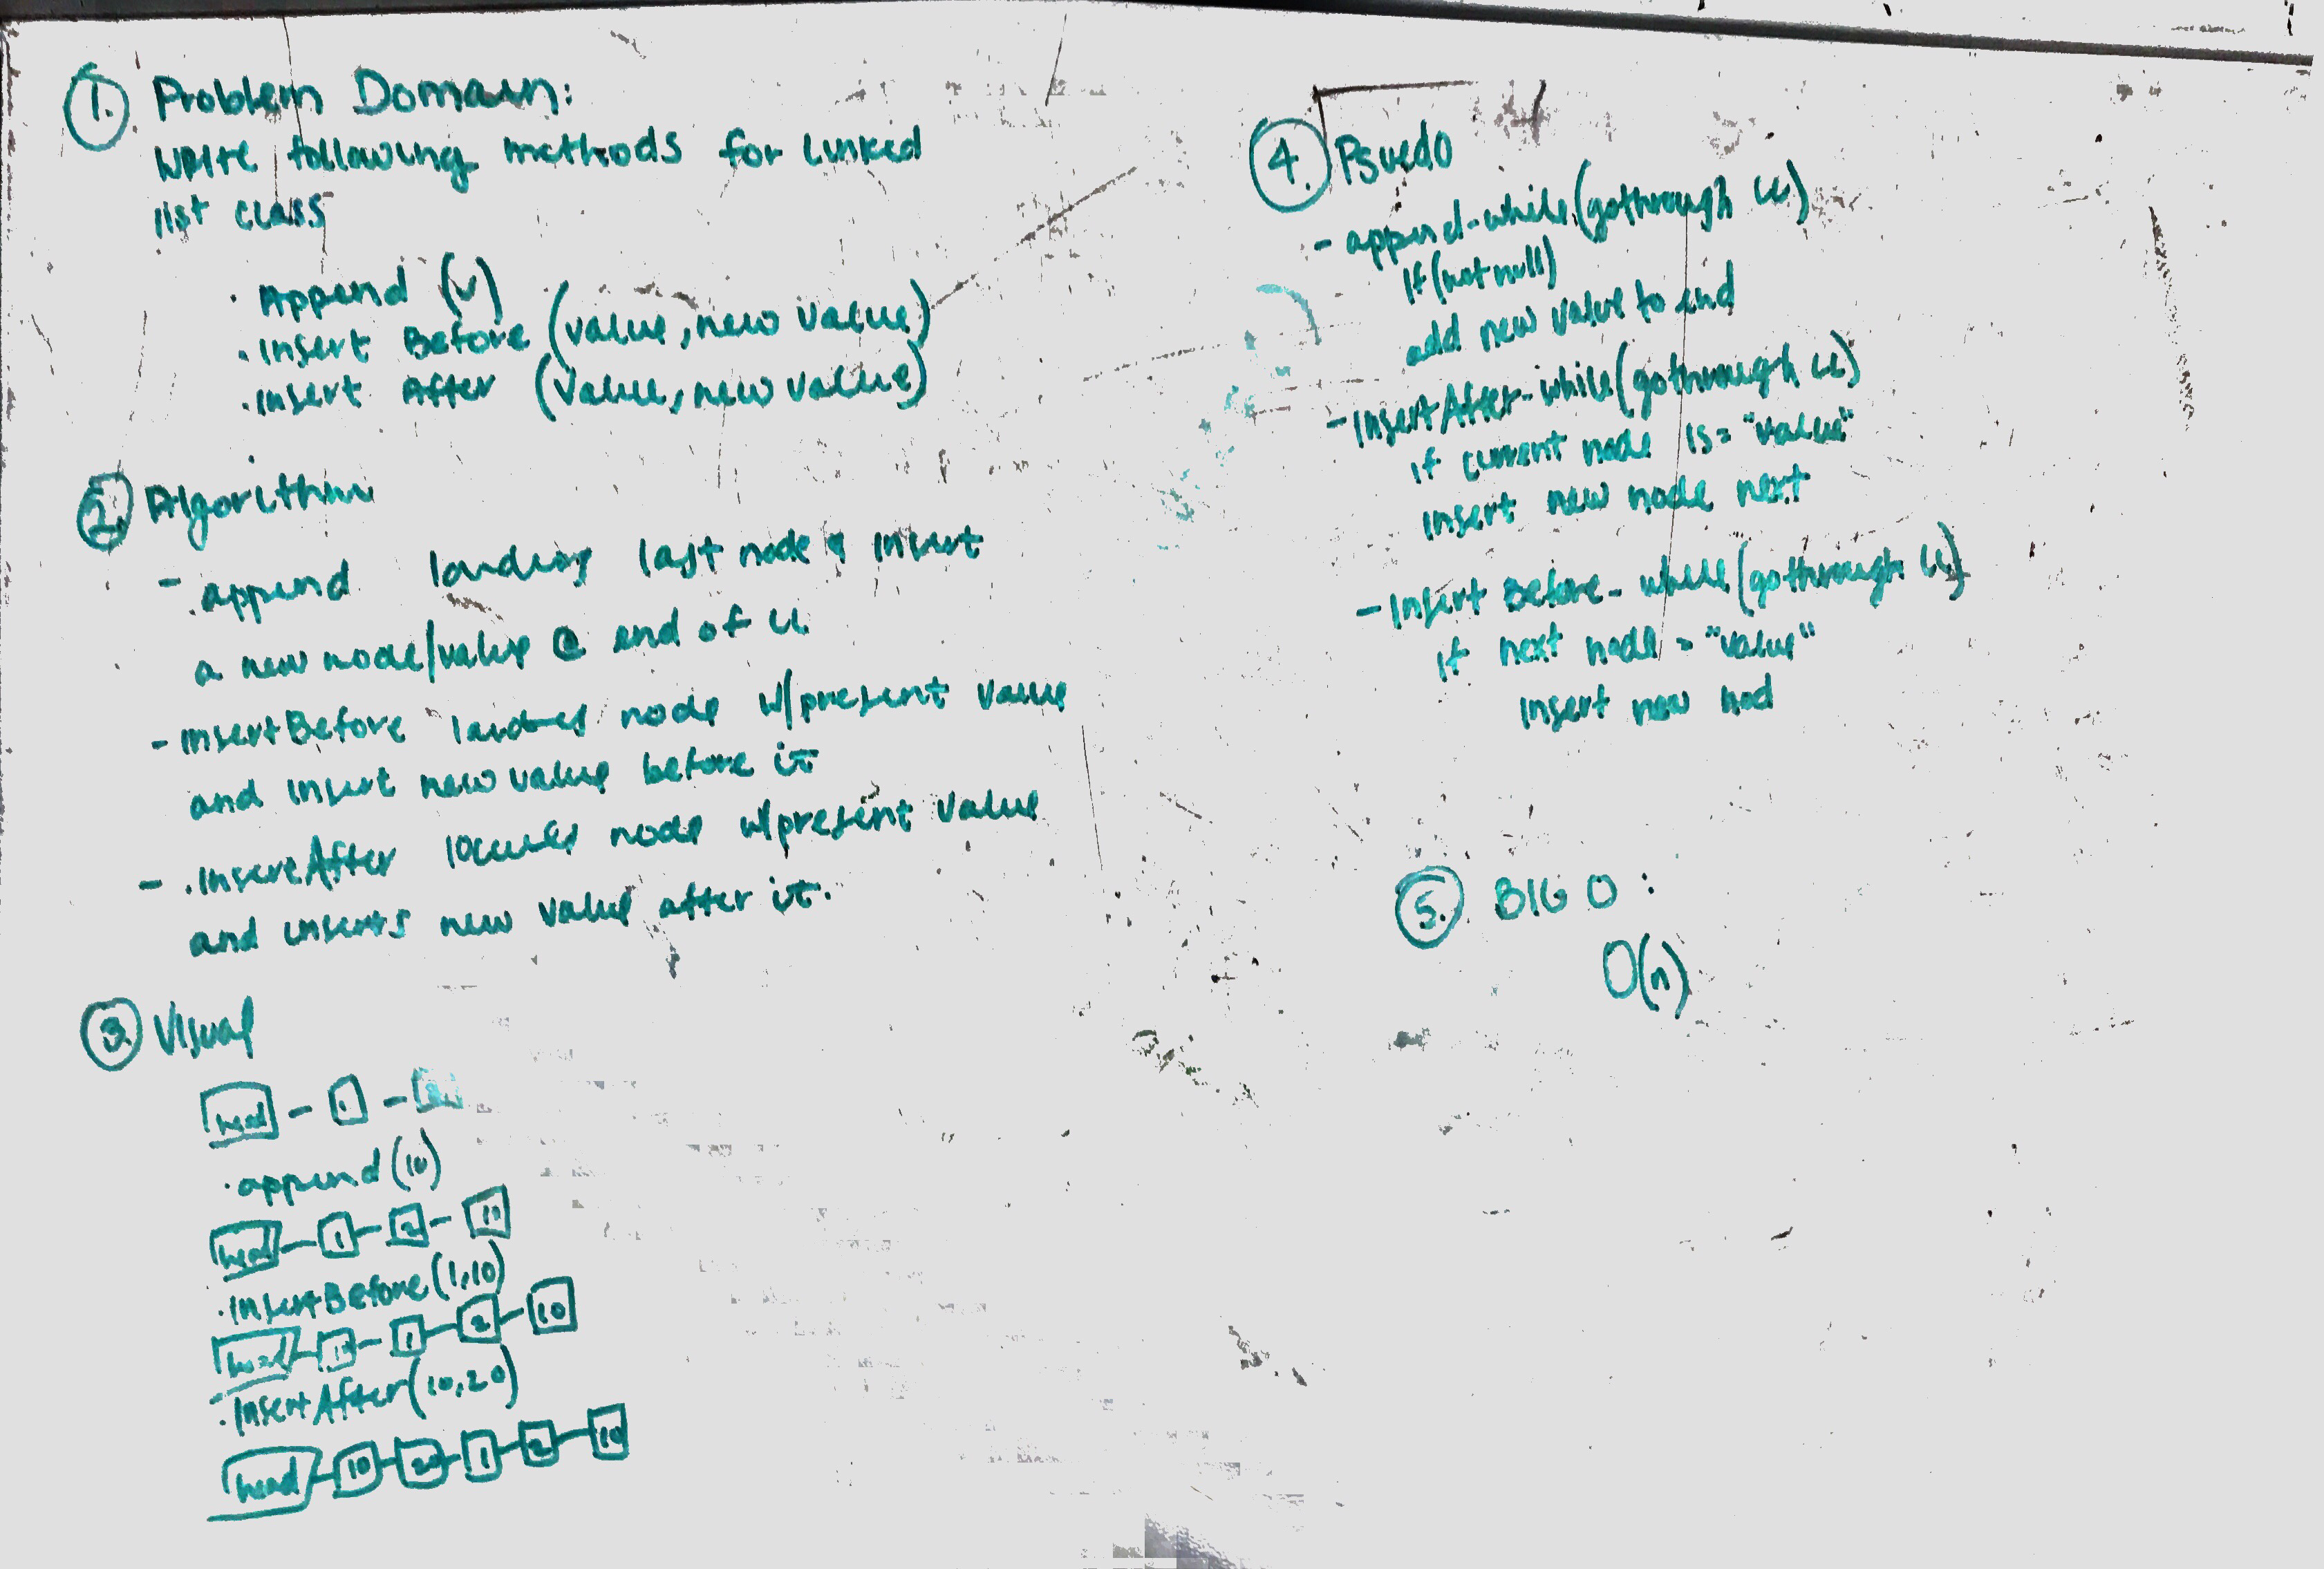 1. Problem Domain:
Write following methods for linked
list class
. Append (v)
. Insert Before (value, new value)
. Insert After (value, new value)
2. Algorithm
- .append last node & insert
a new node/value @ end of LL
- insertBefore node w/present value
and insert new value before it
- .insertAfter locates node w/present value
and inserts new value after it.
3. Visual
head - 1 - 2
.append(10)
head - 1 - 2 - 10
.insertBefore(1,10)
head - 10 - 1 - 2 - 10
.insertAfter(10,20)
head - 10 - 20 - 1 - 2 - 10
4. Psuedo
- append - while(gothrough LL)
if(not null)
add new value to end
- InsertAfter - while(gothrough LL)
if current node is = "value"
insert new node next
- Insert Before - while(gothrough LL)
if next node = "value"
insert new nod
5. BIG O:
O(n)